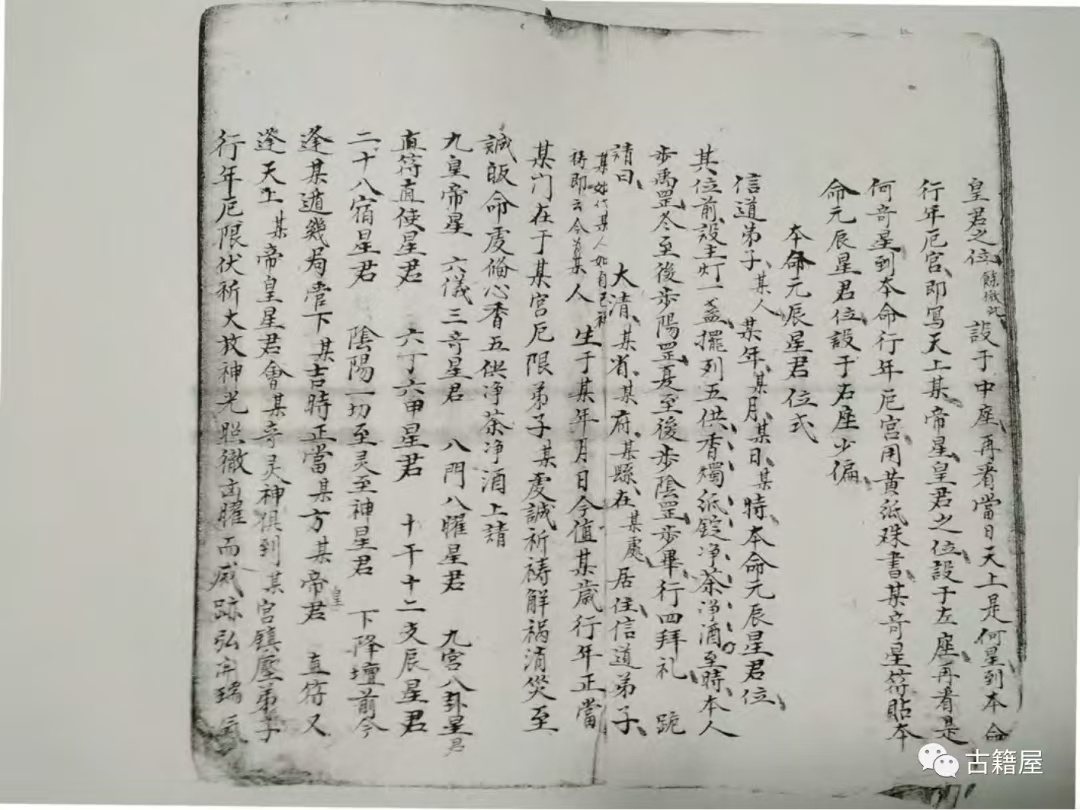 皇君之位餘倣此設于中座再看當日天上是何星到本命
行年厄宮即寫天上某帝星皇君之位設于左座再看是
何奇星到本命行年厄宮用黃紙硃書某奇星符貼本
命元辰星君位設于右座少偏
本命元辰星君位式
信道弟子某人某年某月某日某時本命元辰星君位
其位前設主灯一盞擺列五供香燭紙錠净茶净酒至時本人
步禹罡冬至後步陽罡夏至後步陰罡步畢行四拜礼 跪
請曰 大清某省某府某縣在某處居住信道弟子
某人 生于某年月日今值某歲行年正當
某門在于某宮厄限弟子某虔誠祈祷解禍消災至
誠皈命虔偹心香五供净茶净酒上請
九皇帝星 六儀三奇星君 八門八曜星君 九宮八卦星君
直符直使星君 六丁六甲星君 十干十二支辰星君
二十八宿星君 陰陽一切至灵至神星君 下降壇前今
逢某遁幾局管下某吉時正當某方某帝皇君 直符又
逢天上某帝皇星君會某奇灵神俱到某宮鎮壓弟子
行年厄限伏祈大放神光照徹凶曜而威跡弘開瑞氣
古籍屋